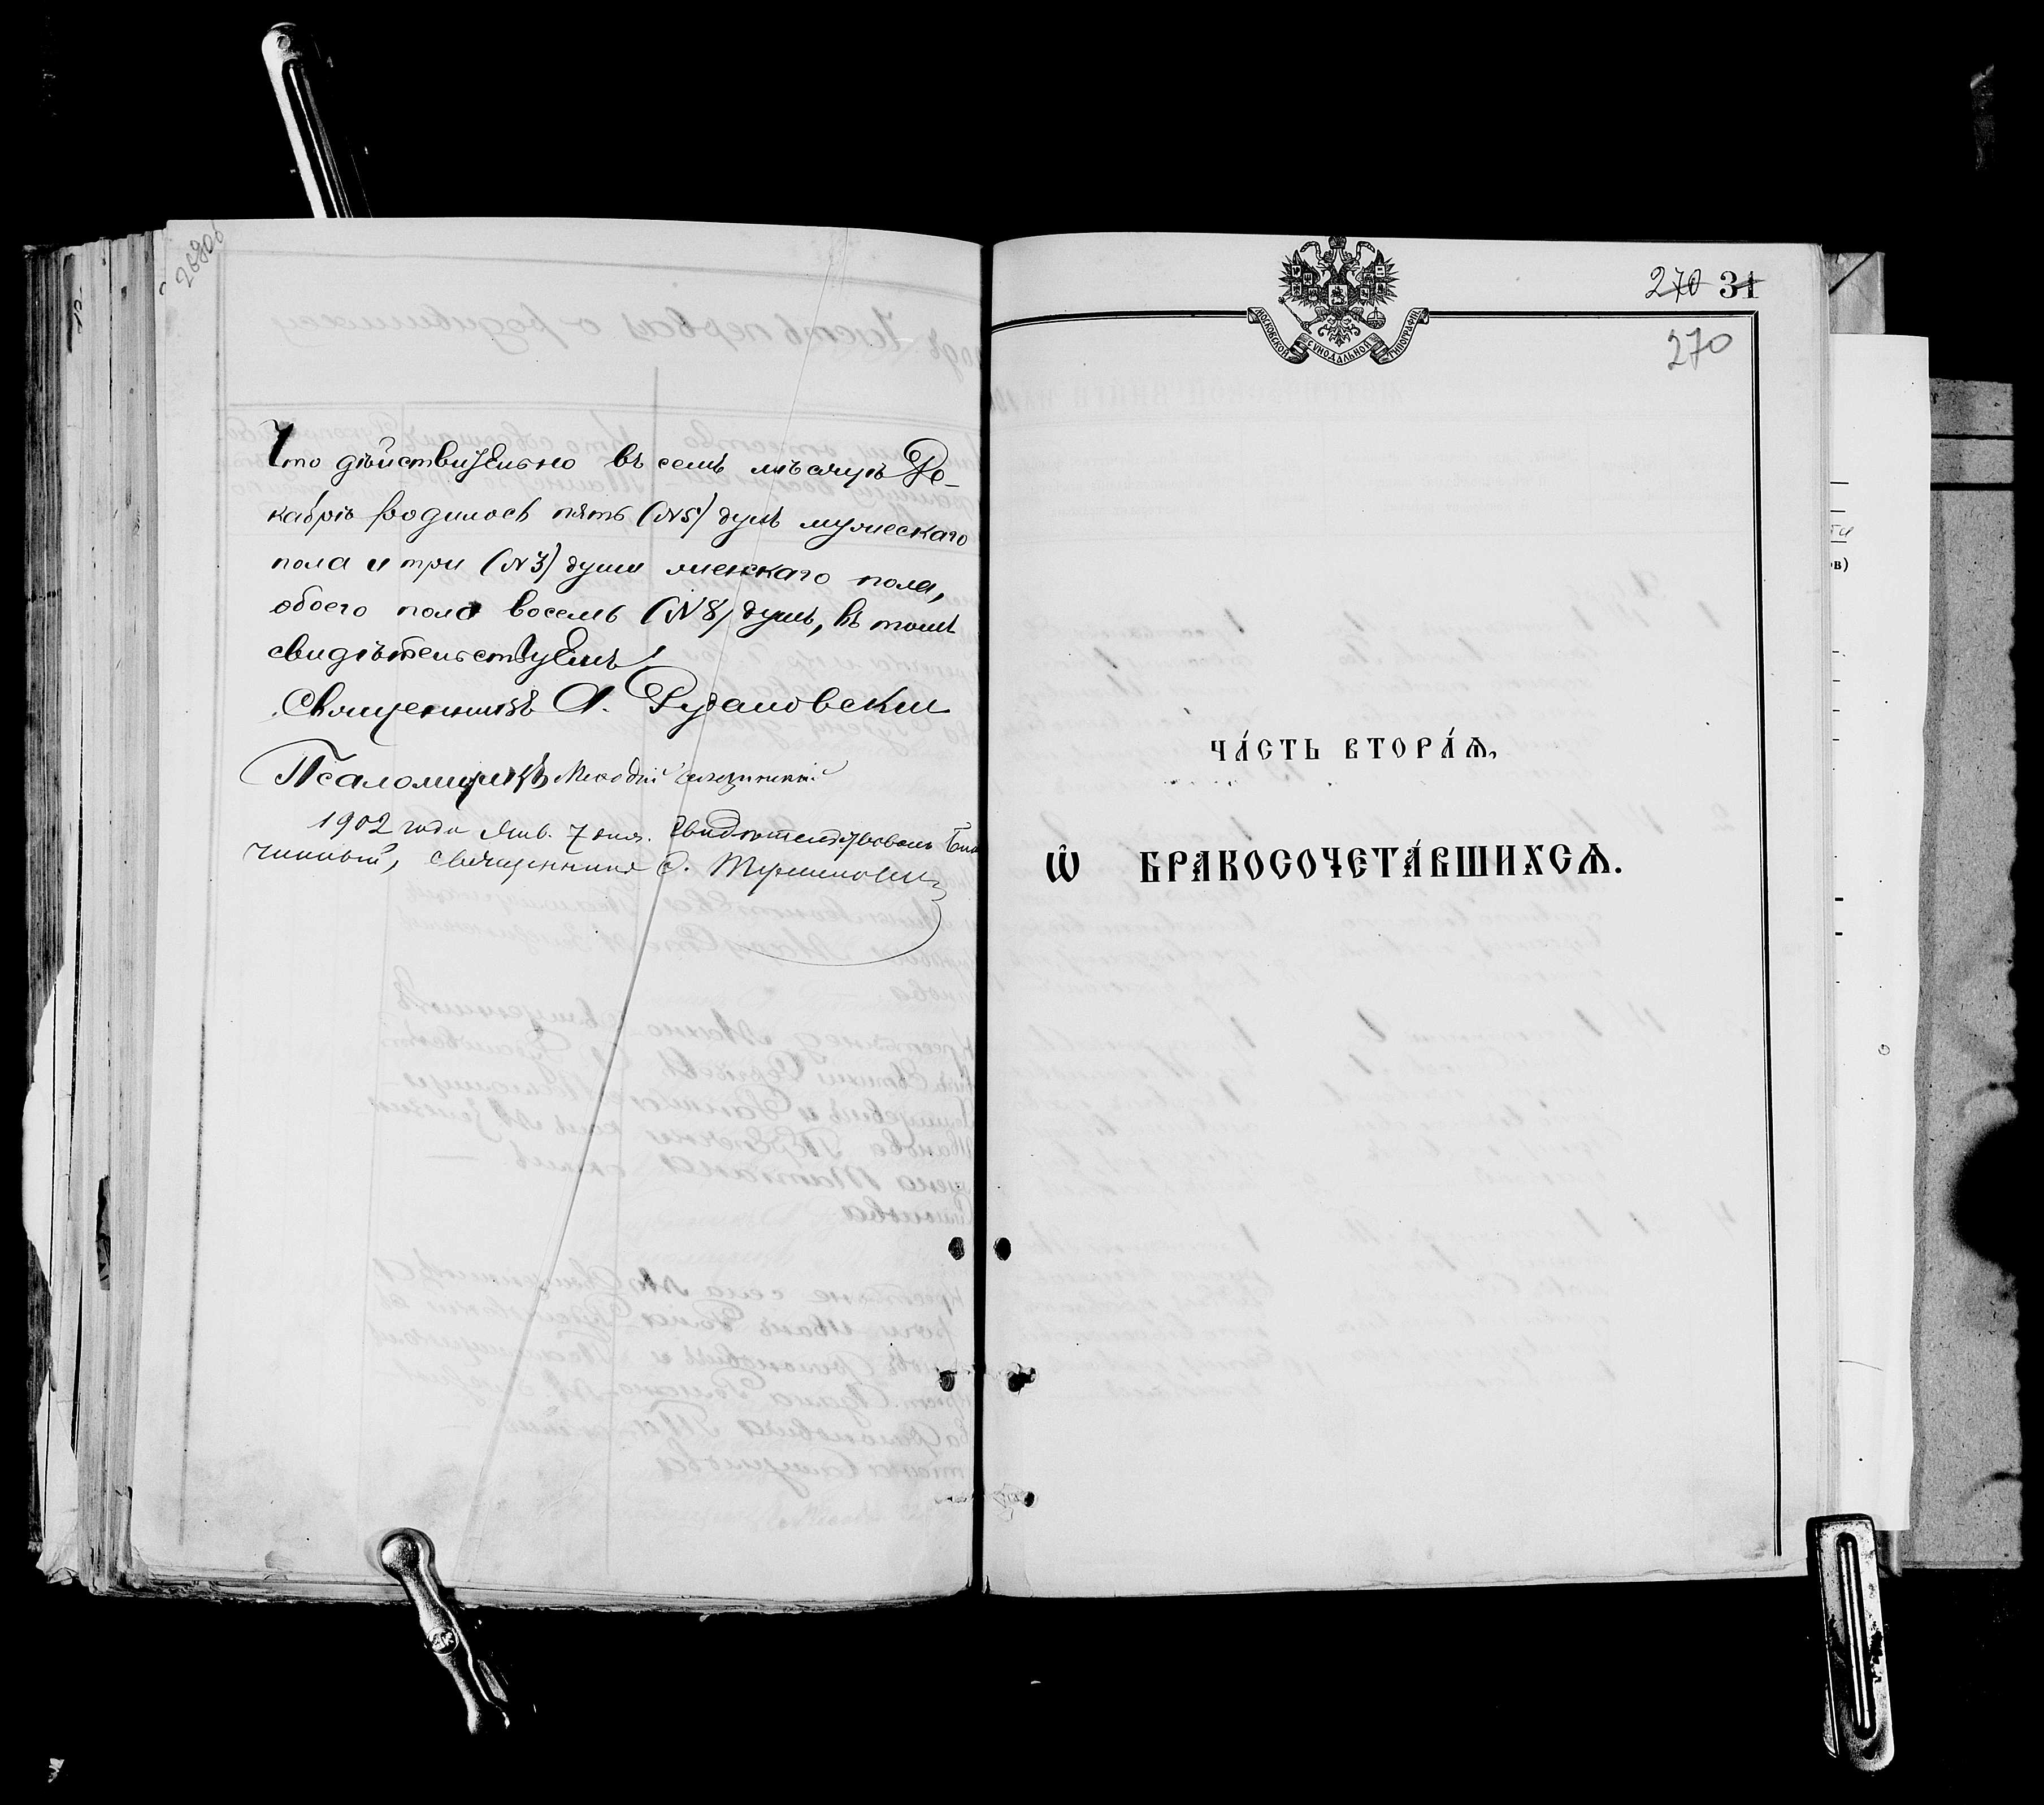 268об
Что дѣйствительно въ семъ мѣсяцѣ Де-
кабрѣ родилось пять (№5) душъ мужескаго
пола и три (№3) души женскаго пола,
обоего пола восемь (№8) душъ, въ томъ
свидѣтельствуемъ
Священникъ А. Рудановскiй
Псаломщикъ Меѳодій
1902 года Янв. 7 дня. Свидѣтельствовалъ Бла
чинный, священникъ
МОСКОВСКОЙ СѴНОДАЛЬНОЙ ТИПОГРАФІИ
270 31
270
ЧА́СТЬ ВТОРА́Ѧ,
Ѽ БРАКОСОЧЕТА́ВШИХСѦ.